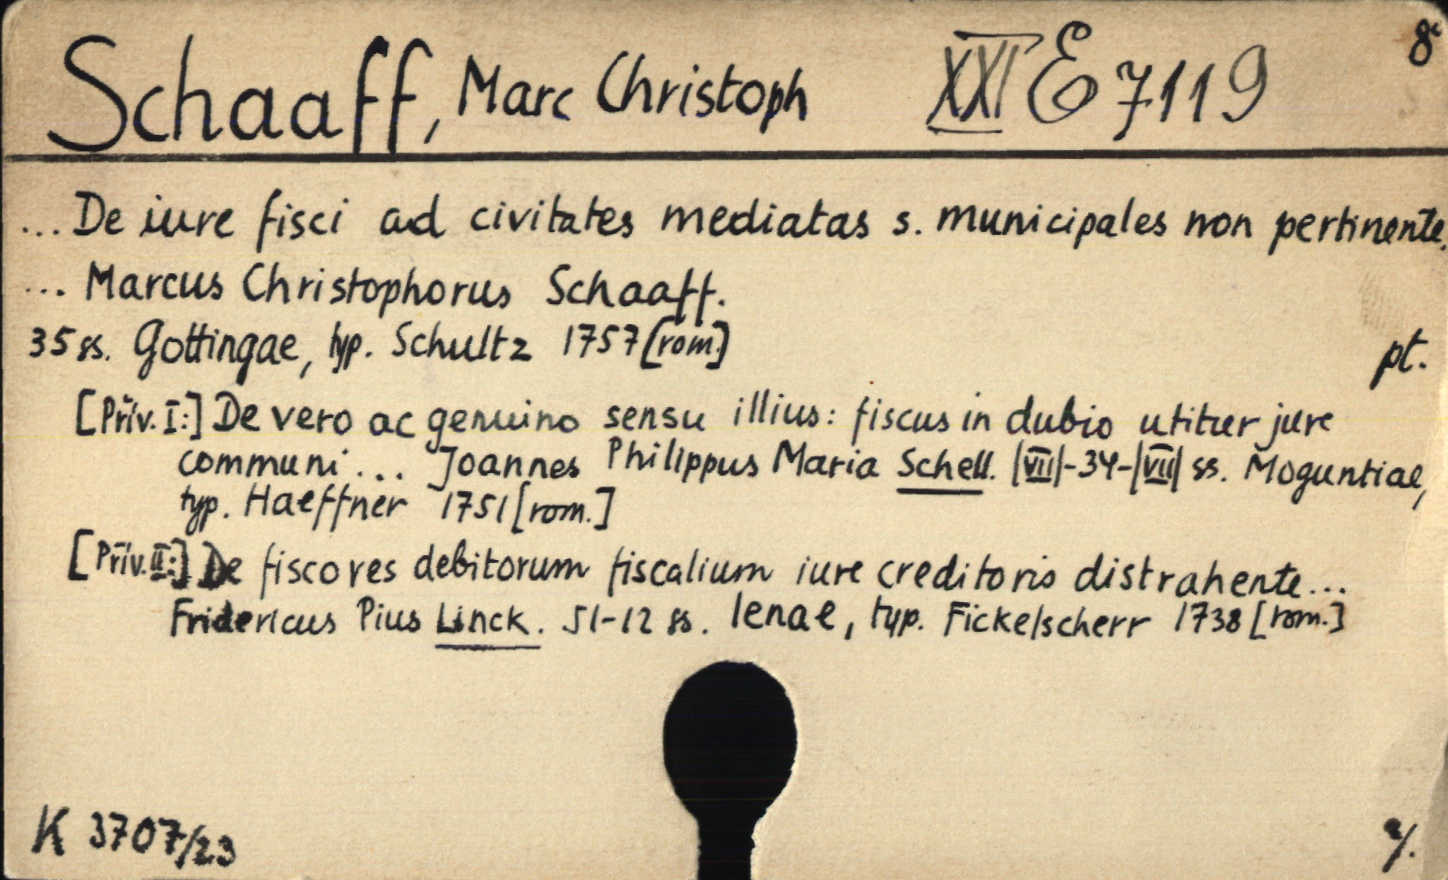 Schaaff, Marc Christoph XXI E 7119 8°
... De iure fisci ad civitates mediatas s. municipales non pertinente.
... Marcus Christophorus Schaaff.
35 ss. Gottingae, typ. Schultz 1757 [rom.] pt.
[Přiv. I:] De vero ac genuino sensu illius: fiscus in dubio utitur jure
communi ... Joannes Philippus Maria Schell. |VIII|-34-|VIII| ss. Moguntiae,
typ. Haeffner 1751 [rom.]
[Přív. II:] De fisco res debitorum fiscalium iure creditoris distrahente...
Fridericus Pius Linck. 51-12 ss. Ienae, typ. Fickelscherr 1738 [rom.]
K 3707/23